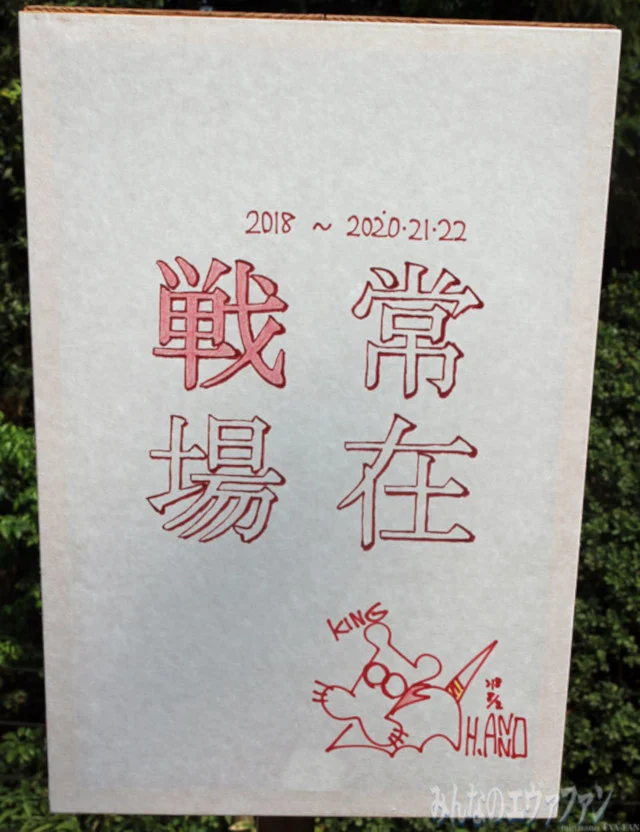 2018 ~ 2020・21・22
常在
戦場
KING
H.ANNO
みんなのエヴァファン